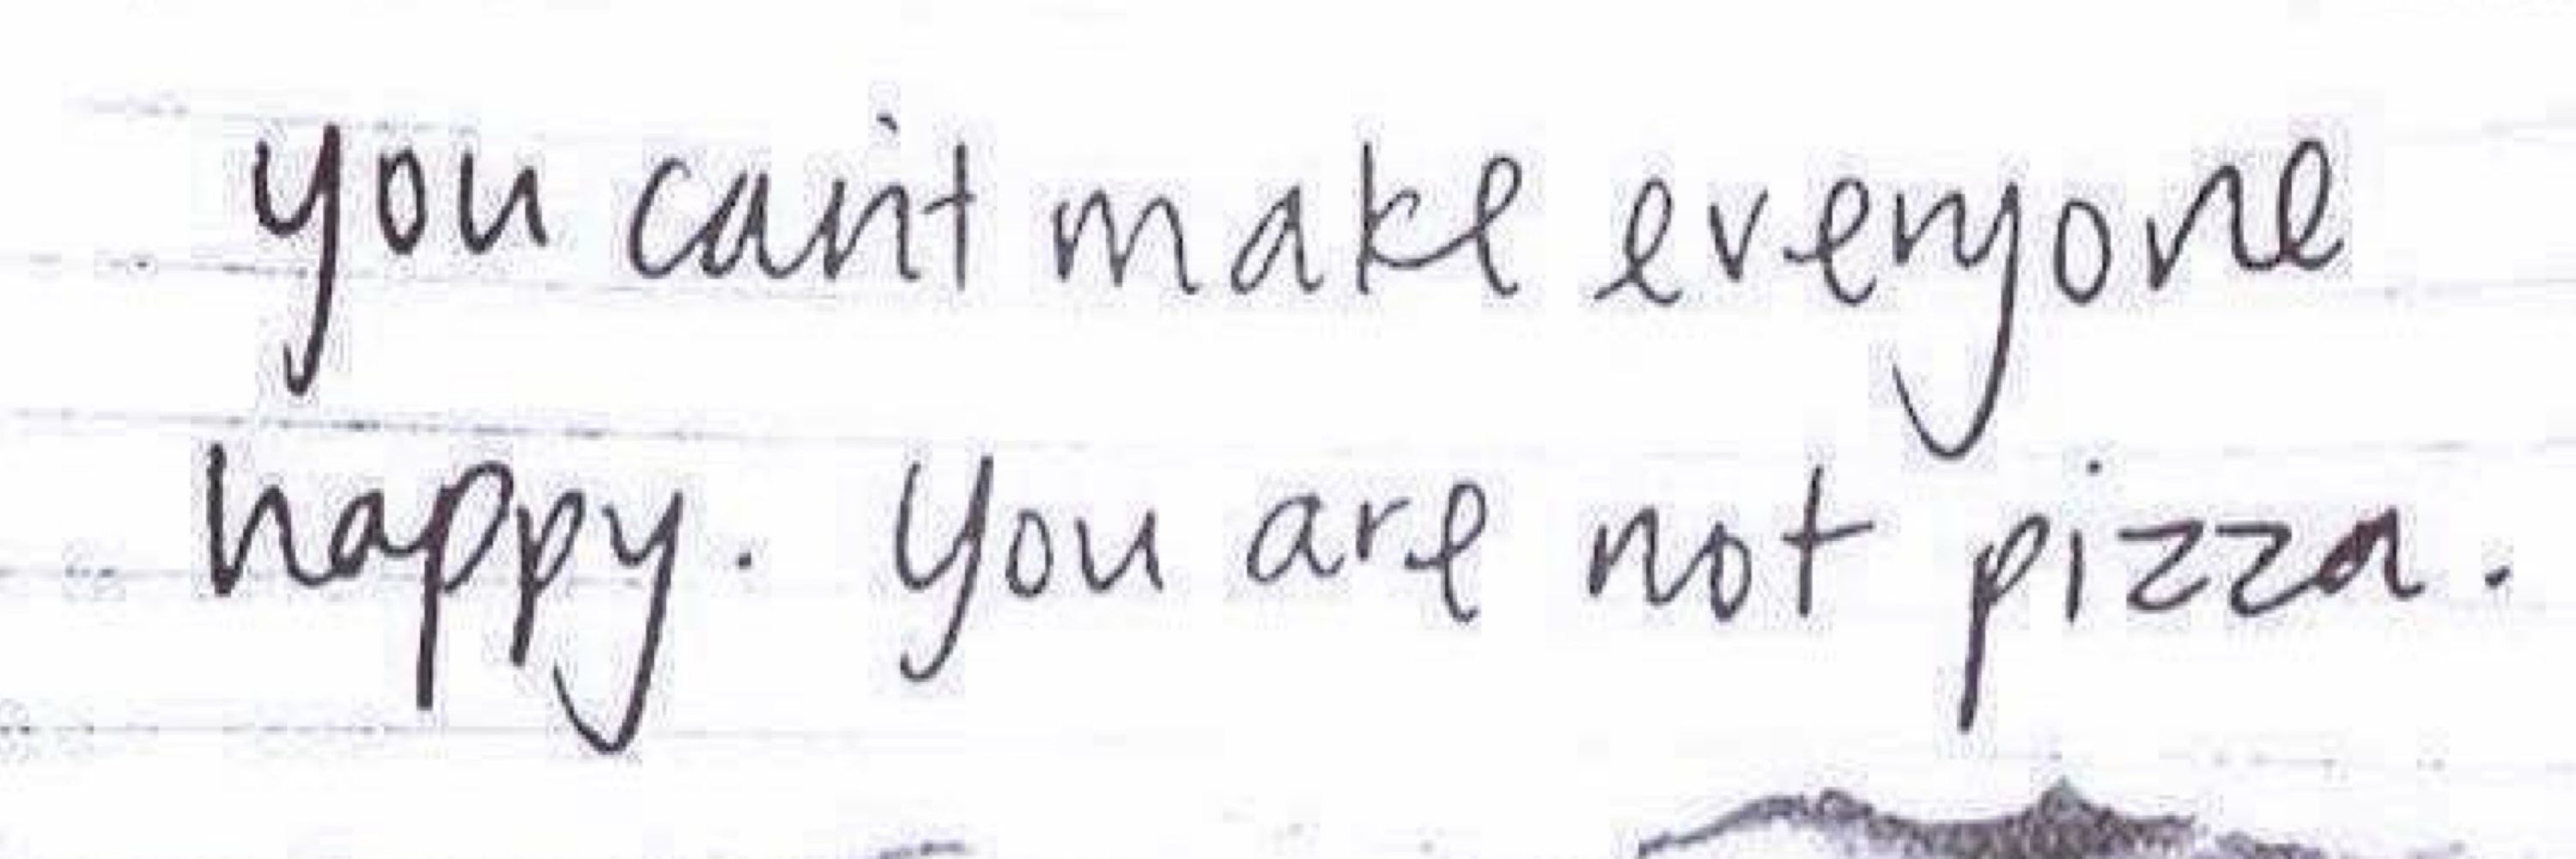 you can't make everyone
happy. You are not pizza.